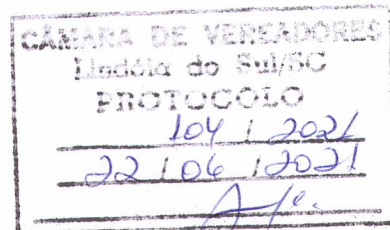 CÂMARA DE VEREADORES
Lindóia do Sul/SC
PROTOCOLO
104 / 2021
22 / 06 / 2021